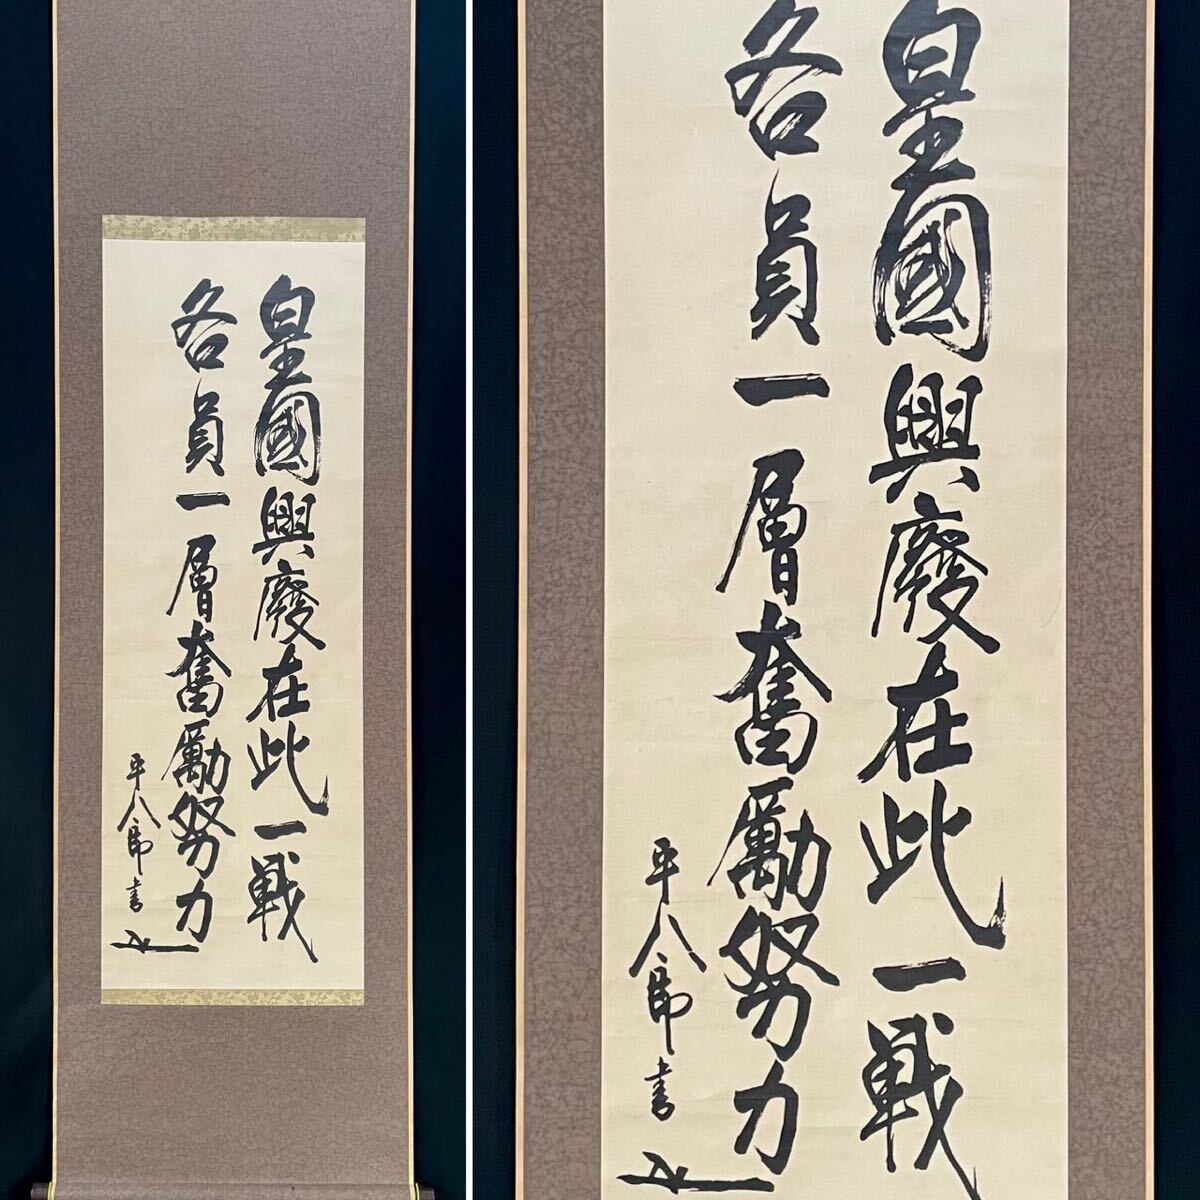 皇國興廢在此一戰
各員一層奮勵努力
平八郎書
皇國興廢在此一戰
各員一層奮勵努力
平八郎書